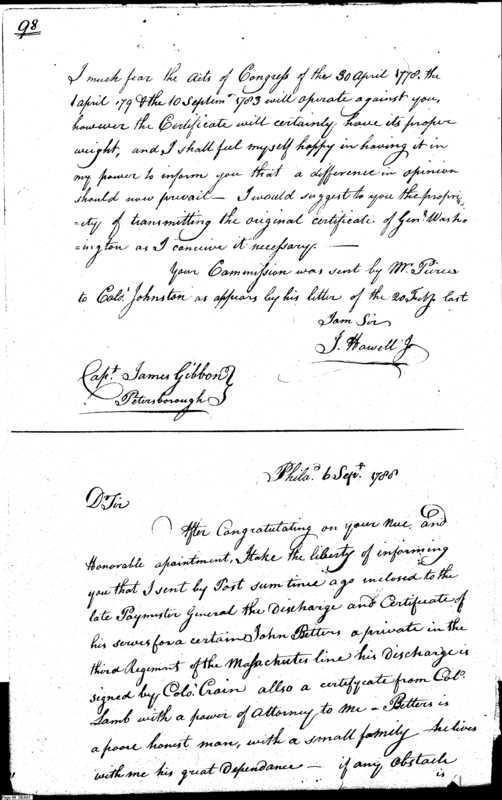 98
I much fear the Acts of Congress of the 30 April 1778. the
1 April 79 & the 10 Septemr 1783 will operate against you,
however the Certificate will certainly have its proper
weight, and I shall feel myself happy in having it in
my power to inform you that a difference in opinion
should now prevail— I would suggest to you the propri=
=ety of transmitting the original certificate of Genl. Wash=
=ington as I conceive it necessary. —
Your Commission was sent by Mr. Pierce
to Colo. Johnston as appears by his letter of the 20 last
I am Sir
J. Howell Jr
Capt. James Gibbon
Petersborough
Philad. 6 Sept. 1788
D Sir
After Congratutating on your Nue and
Honorable apointment, I take the liberty of informing
you that I sent by Post sum time ago inclosed to the
late Paymester General the Discharge and Certificate of
his serves for a certain John Betters a private in the
third Regiment of the Massachutes line his Discharge is
signed by Colo. Crain allso a certifycate from Col.
Lamb with a power of Attorney to me – Betters is
a poore honest man, with a small family – he lives
with me his great Dependance — if any Obstacle
is